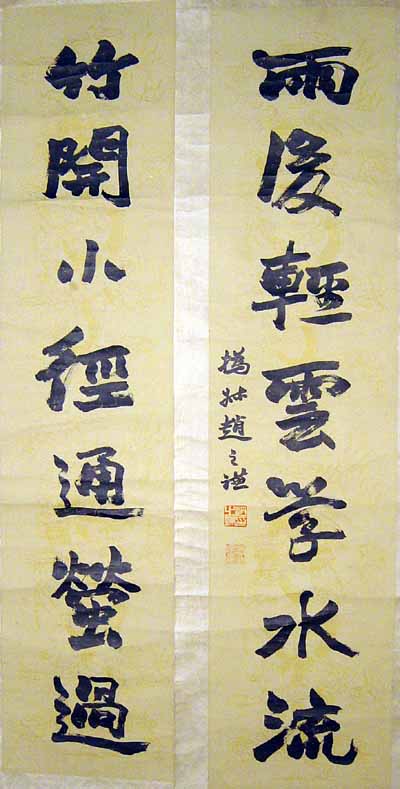 雨後輕雲學水流
竹開小徑通螢過
撝叔趙之謙